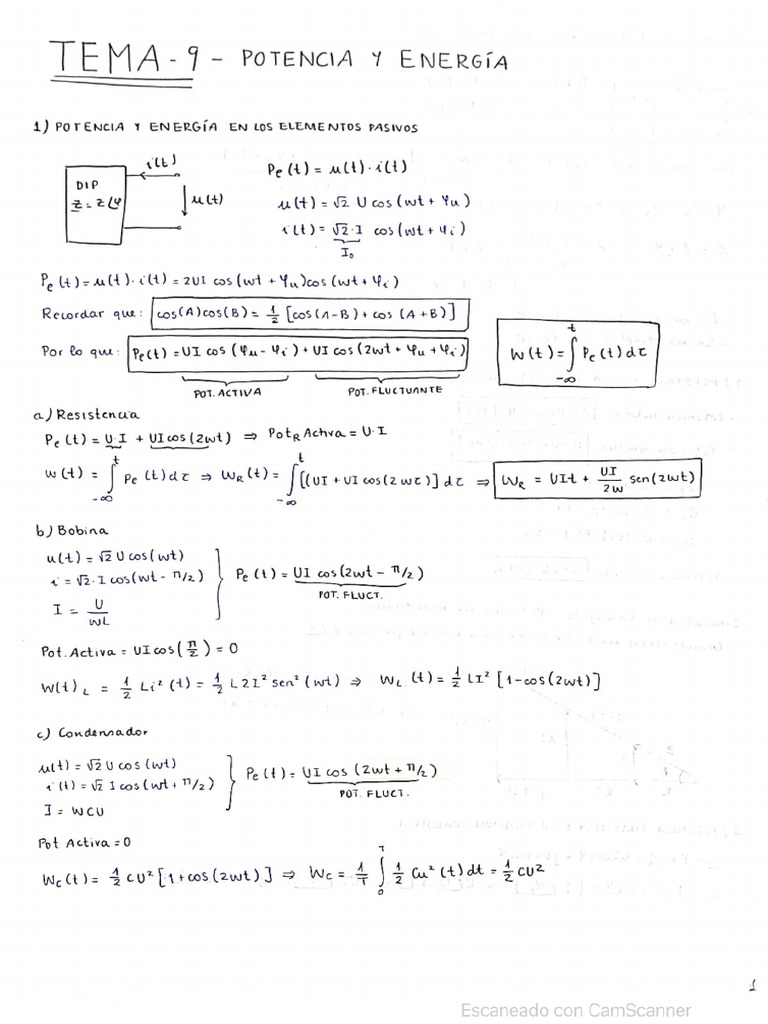 TEMA-9 - POTENCIA Y ENERGÍA
1) POTENCIA Y ENERGÍA EN LOS ELEMENTOS PASIVOS
DIP
Z = Z∠φ
i(t)
u(t)
Pe(t) = u(t)·i(t)
u(t) = √2 U cos(wt + φu)
i(t) = √2·I cos(wt + φi)
I₀
Pe(t) = u(t)·i(t) = 2UI cos(wt + φu)cos(wt + φi)
Recordar que: cos(A)cos(B) = 1/2 [cos(A-B) + cos(A+B)]
Por lo que: Pe(t) = UI cos(φu - φi) + UI cos(2wt + φu + φi)
POT. ACTIVA POT. FLUCTUANTE
W(t) = ∫_{-∞}^{t} Pe(t) dτ
a) Resistencia
Pe(t) = U·I + UI cos(2wt) ⇒ Pot_R Activa = U·I
w(t) = ∫_{-∞}^{t} Pe(t) dτ ⇒ W_R(t) = ∫_{-∞}^{t} [(UI + UI cos(2wτ)] dτ ⇒ W_R = UIt + UI/2w sen(2wt)
b) Bobina
u(t) = √2 U cos(wt)
i = √2·I cos(wt - π/2)
I = U/wL
Pe(t) = UI cos(2wt - π/2)
POT. FLUCT.
Pot. Activa = UI cos(π/2) = 0
W(t)_L = 1/2 Li²(t) = 1/2 L2I² sen²(wt) ⇒ W_L(t) = 1/2 LI² [1-cos(2wt)]
c) Condensador
u(t) = √2 U cos(wt)
i(t) = √2 I cos(wt + π/2)
I = WCU
Pe(t) = UI cos(2wt + π/2)
POT. FLUCT.
Pot Activa = 0
W_C(t) = 1/2 CU² [1+cos(2wt)] ⇒ W_C = 1/T ∫_{0}^{T} 1/2 Cu²(t) dt = 1/2 CU²
1
Escaneado con CamScanner